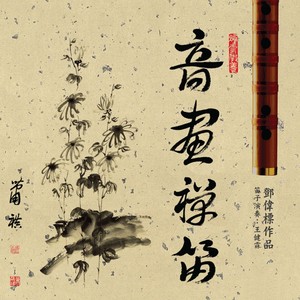 音畫禪笛
鄧偉標作品
笛子演奏：王健霖